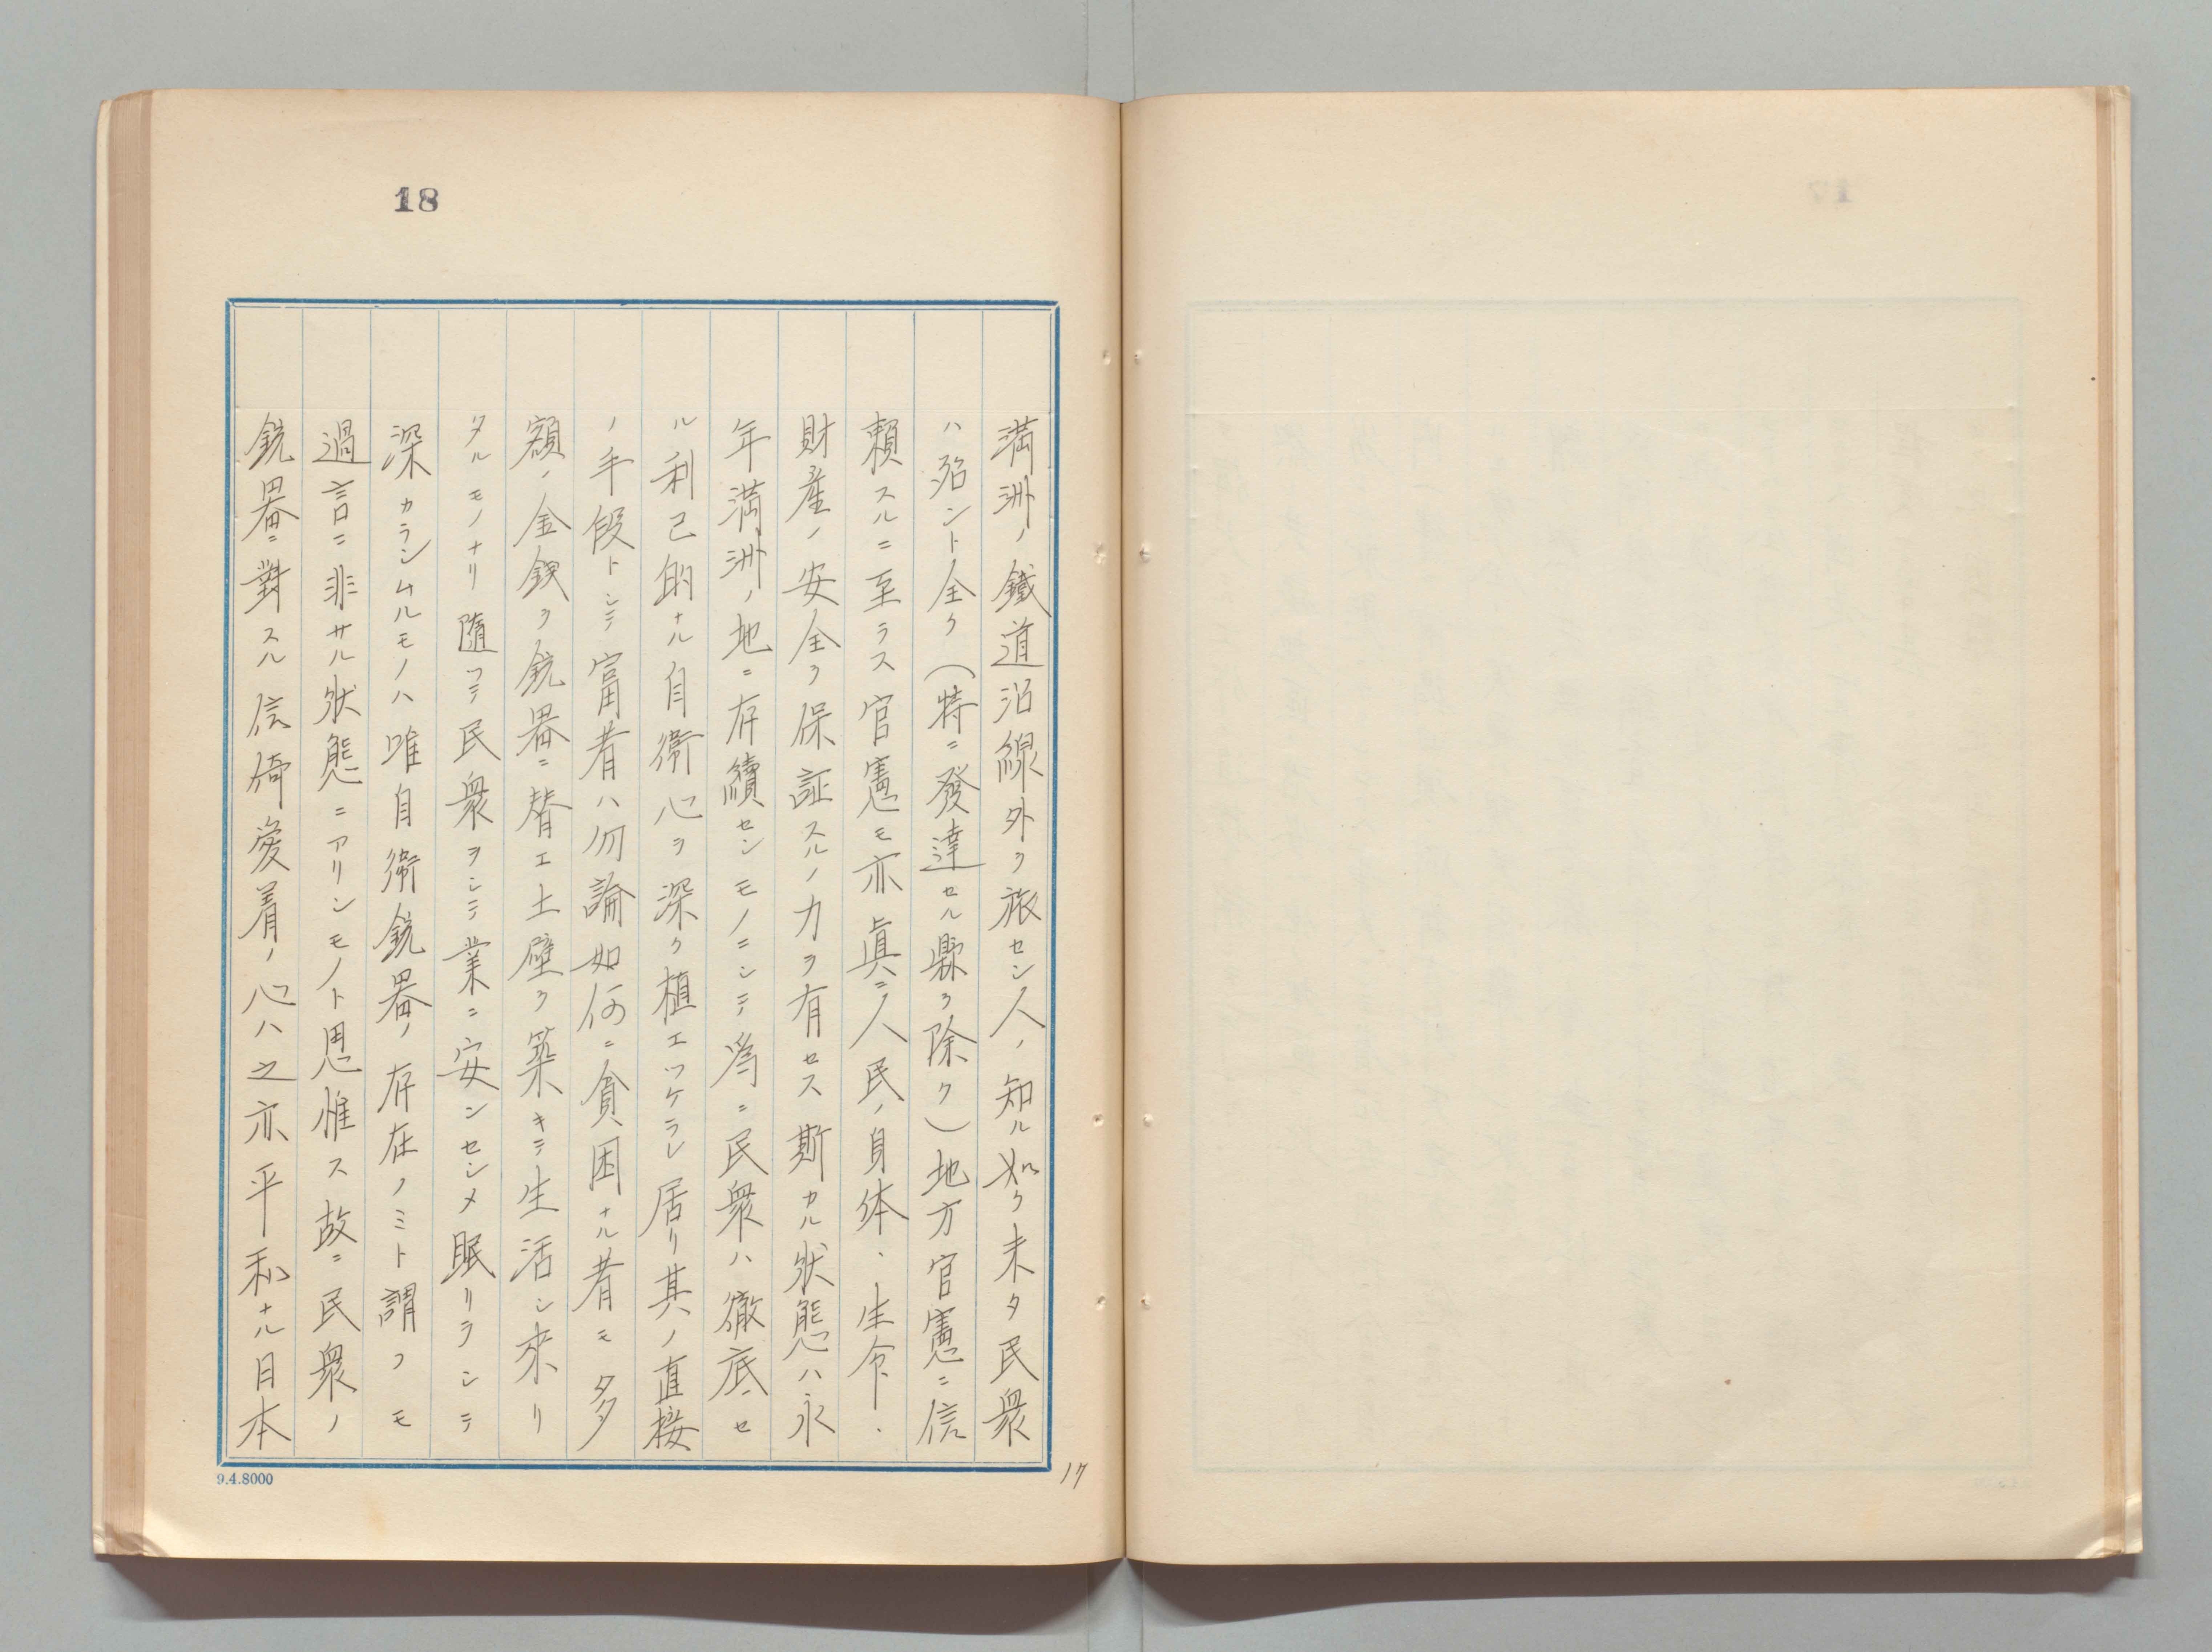 18
満洲ノ鐵道沿線外ヲ旅セン人ノ知ル如ク未タ民衆
ハ殆ント全ク（特ニ發達セル縣ヲ除ク）地方官憲ニ信
頼スルニ至ラス官憲モ亦眞ニ人民ノ身体、生命、
財産ノ安全ヲ保証スルノ力ヲ有セス斯カル状態ハ永
年満洲ノ地ニ存續センモノニシテ為ニ民衆ハ徹底セ
ル利己的ナル自衛心ヲ深ク植エツケラレ居リ其ノ直接
ノ手段トシテ富者ハ勿論如何ニ貧困ナル者モ多
額ノ金銭ヲ銃器ニ替エ土壁ヲ築キテ生活シ來リ
タルモノナリ随ツテ民衆ヲシテ業ニ安ンセシメ眠リヲシテ
深カラシムルモノハ唯自衛銃器ノ存在ノミト謂フモ
過言ニ非サル状態ニアリシモノト思惟ス故ニ民衆ノ
銃器ニ對スル信倚愛着ノ心ハ之亦平和ナル日本
17
9.4.8000